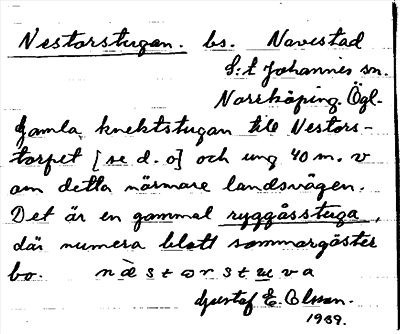 Nestorstugan. bs. Navestad
S:t Johannis sn.
Norrköping. Ögl.
Gamla knektstugan till Nestors-
torpet [se d. o] och ung 40 m. v
om detta närmare landsvägen.
Det är en gammal ryggåsstuga,
där numera blott sommargäster
bo. nὰstorstuva
Gustaf E. Olsson.
1939.